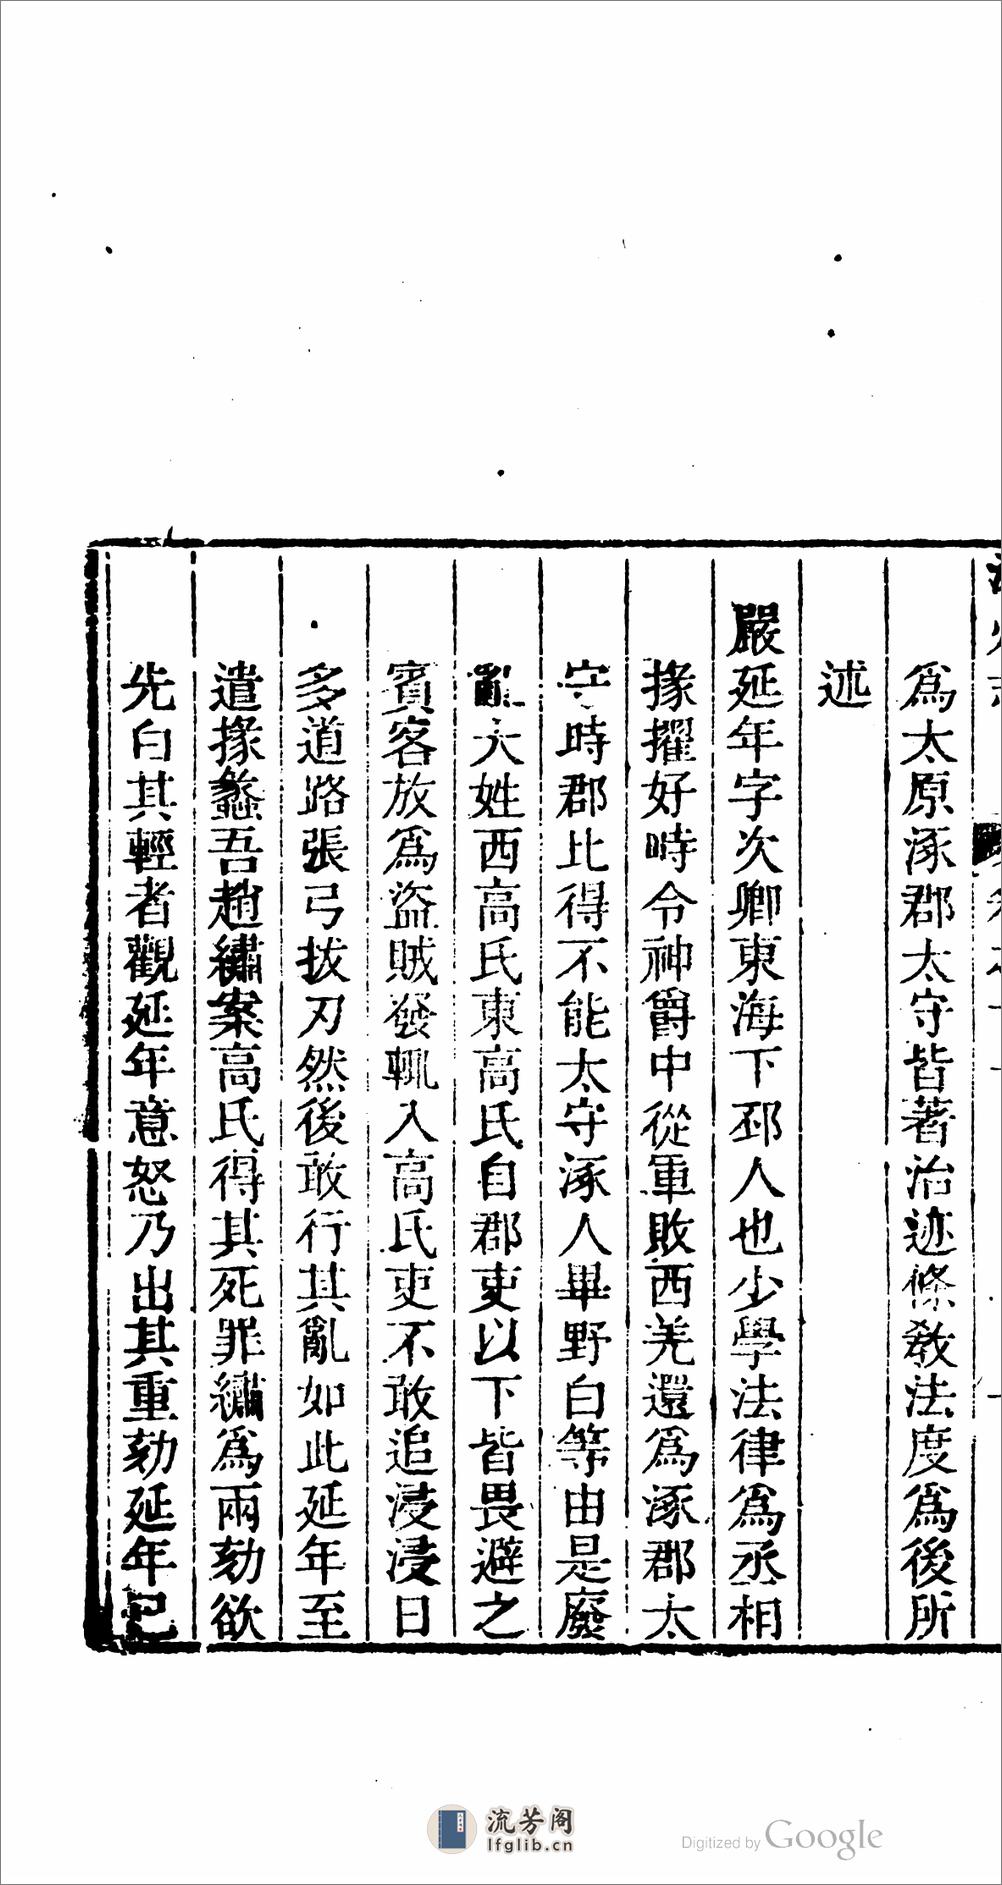 爲太原涿郡太守皆著治迹條敎法度爲後所
述
嚴延年字次卿東海下邳人也少學法律爲丞相
掾擢好時令神爵中從軍敗西羌還爲涿郡太
守時郡比得不能太守涿人畢野白等由是廢
亂大姓西高氏東高氏自郡吏以下皆畏避之
賓客放爲盜賊發輒入高氏吏不敢追浸浸日
多道路張弓拔刃然後敢行其亂如此延年至
遣掾蠡吾趙繡案高氏得其死罪繡爲兩劾欲
先白其輕者觀延年意怒乃出其重劾延年已
流芳阁
lfglib.cn
Digitized by Google